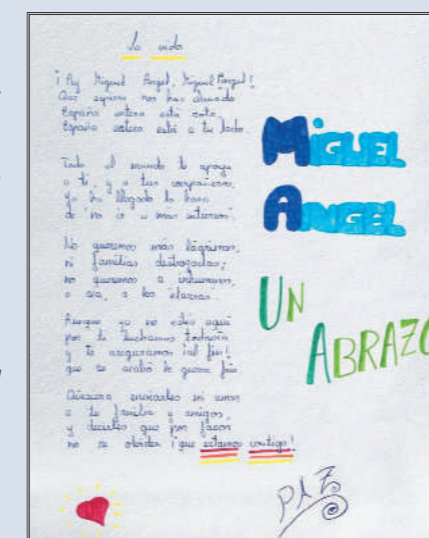 La vida
¡Ay Miguel Ángel, Miguel Ángel!
Que espina nos has clavado
España entera está rota,
España entera está a tu lado.
Todo el mundo te apoya
a ti, y a tus compañeros,
ya ha llegado la hora
de no ir a más entierros.
No queremos más lágrimas,
ni familias destrozadas;
no queremos a inhumanos,
o sea, a los etarras.
Aunque ya no estés aquí
por ti luchamos todavía
y te aseguramos ¡al fin!
que se acabó la guerra fría
Quisiera enviarles mi amor
a tu familia y amigos,
y decirles que por favor
no se olviden ¡que estamos contigo!
MIGUEL
ANGEL
UN
ABRAZO
PAZ